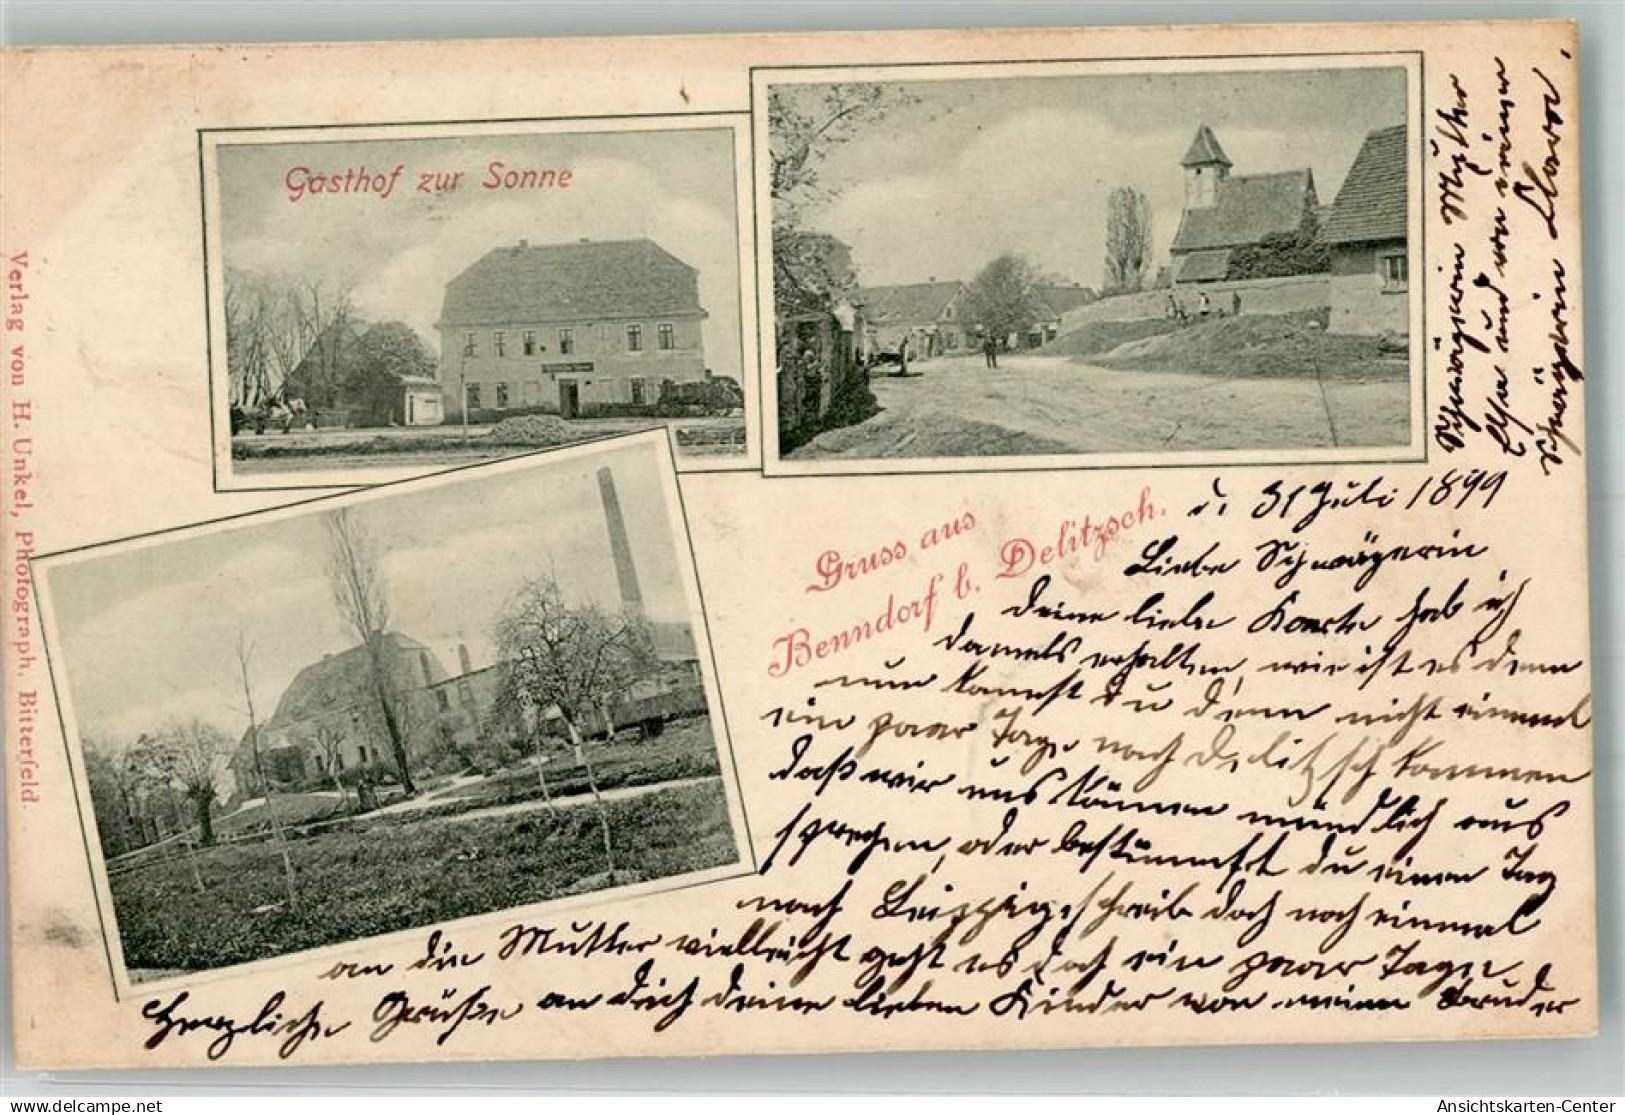 Gasthof zur Sonne
Verlag von H. Unkel, Photograph, Bitterfeld.
Gruss aus
Benndorf b. Delitzsch.
d. 31 Juli 1899
Liebe Schwägerin
deine liebe Karte hab ich
damals erhalten, wie ist es denn
nun kannst du denn nicht einmal
ein paar Tage nach Delitzsch kommen
daß wir uns können mündlich aus
sprechen, oder bestimmst du einen Tag
nach Leipzig, schreib doch noch einmal
an die Mutter vielleicht geht es doch ein paar Tage
Herzliche Grüße an dich deine lieben Kinder von meinen Bruder
Schwägerin Mutter
Else und von einer
Schwägerin
Ansichtskarten-Center